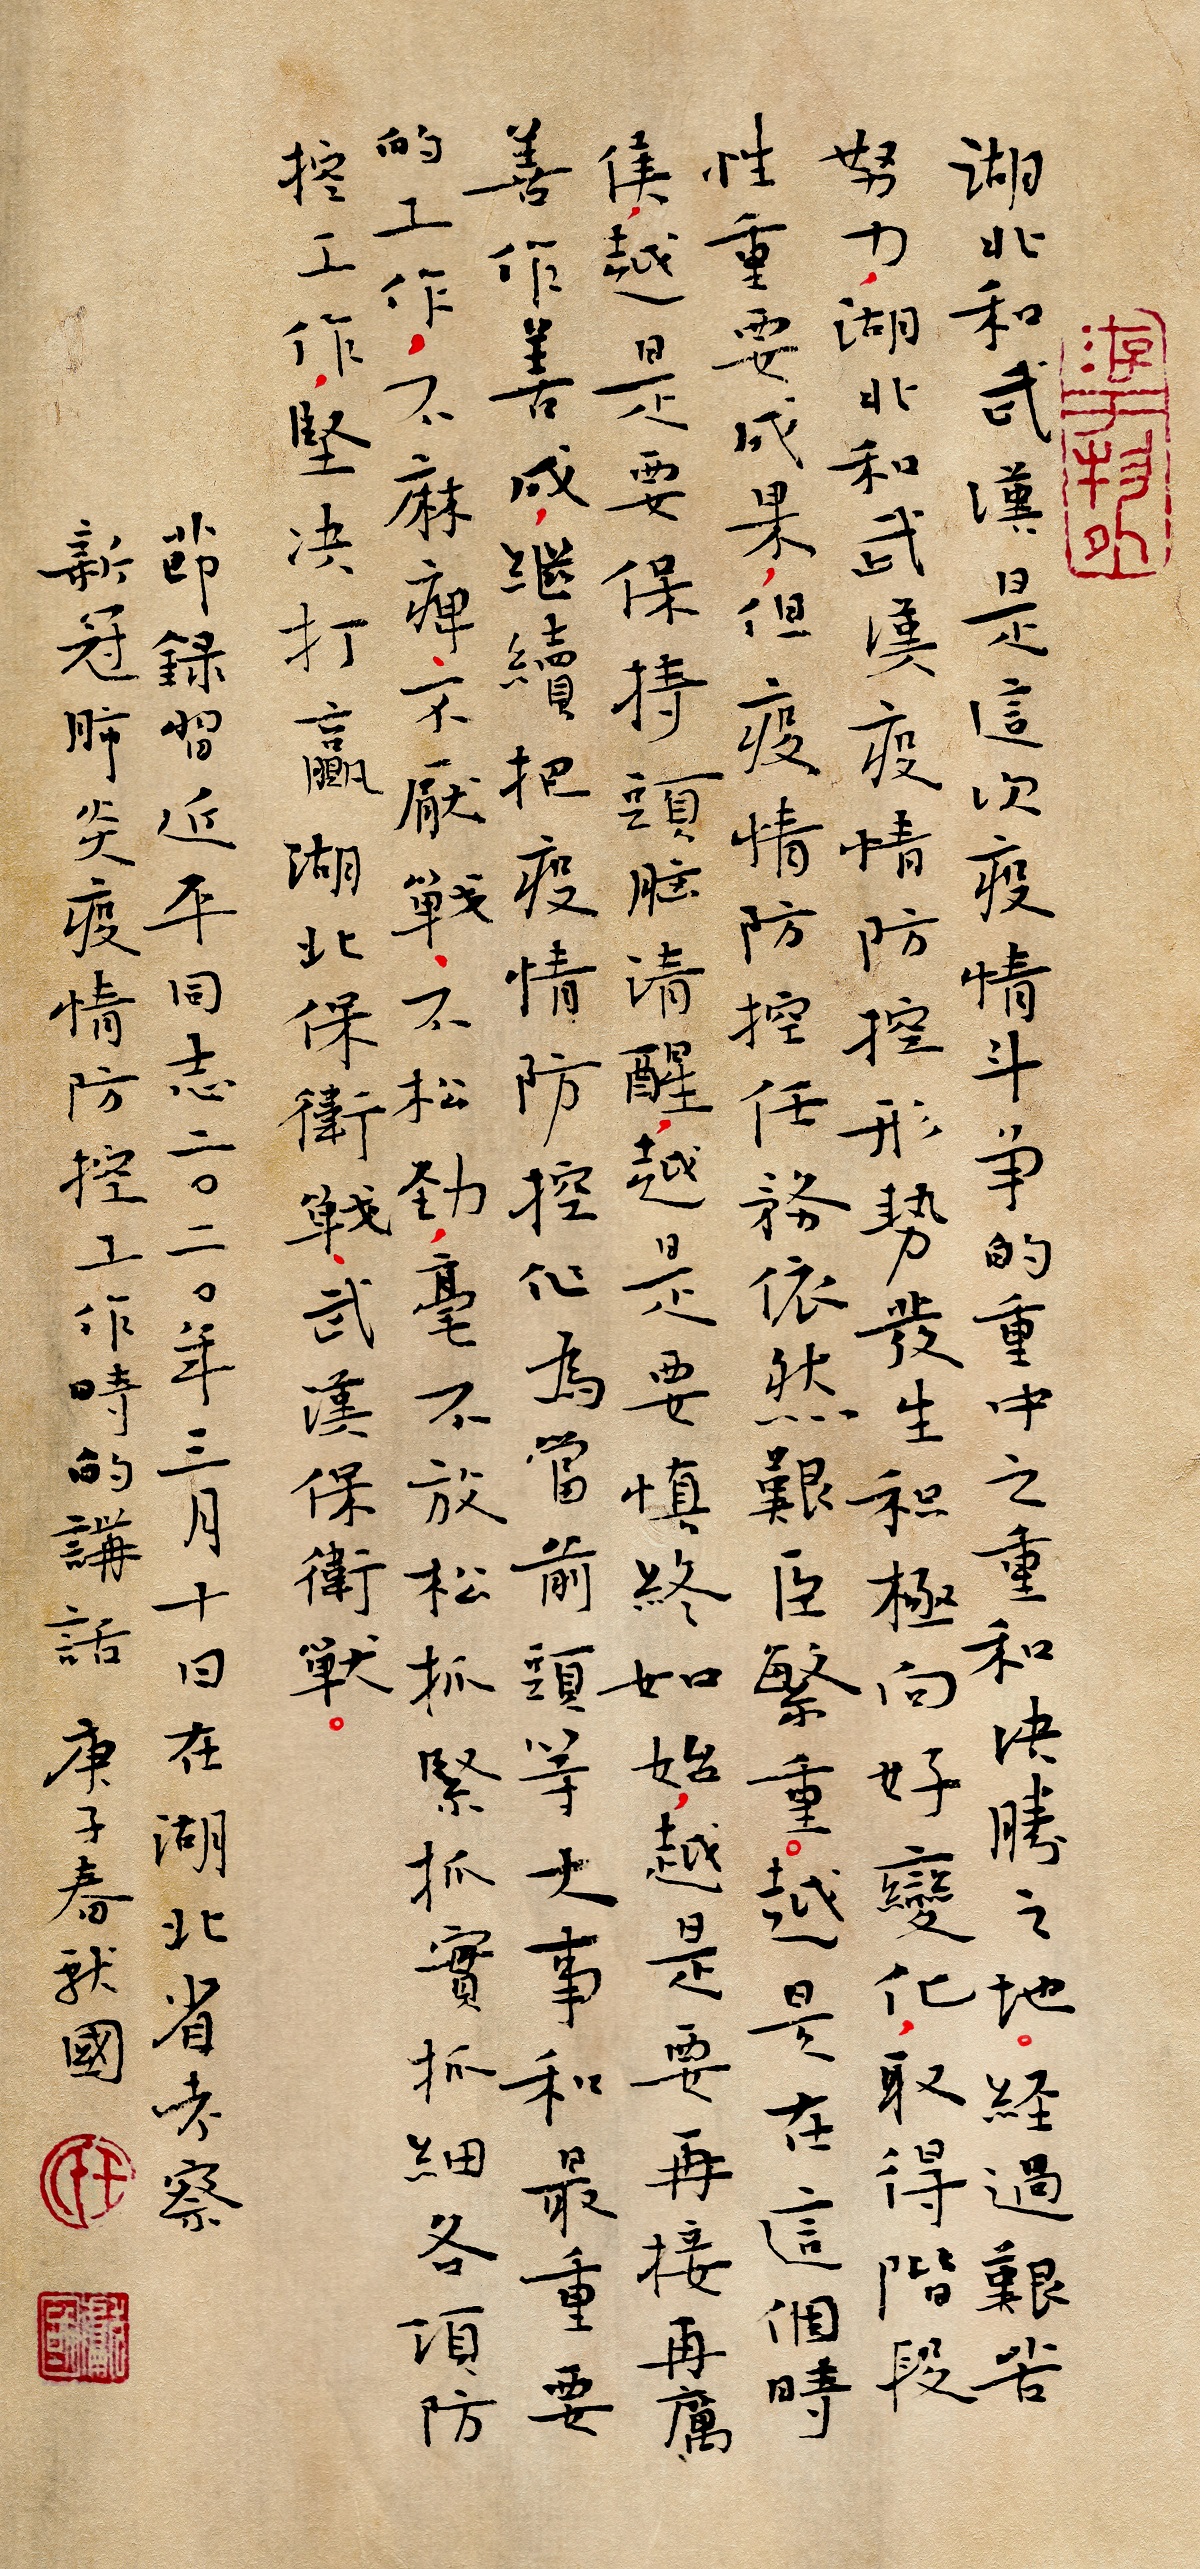 湖北和武漢是這次疫情斗争的重中之重和决勝之地。経過艱苦
努力,湖北和武漢疫情防控形势發生积極向好變化,取得階段
性重要成果,但疫情防控任務依然艱巨繁重。越是在這個時
候,越是要保持頭脑清醒,越是要慎終如始,越是要再接再厲
善作善成,継續把疫情防控作為當前頭等大事和最重要
的工作,不麻痺、不厭戰、不松勁,毫不放松抓緊抓實抓細各項防
控工作,堅决打贏湖北保衛戰、武漢保衛戰。
節録習近平同志二〇二〇年三月十日在湖北省考察
新冠肺炎疫情防控工作時的講話 庚子春献國